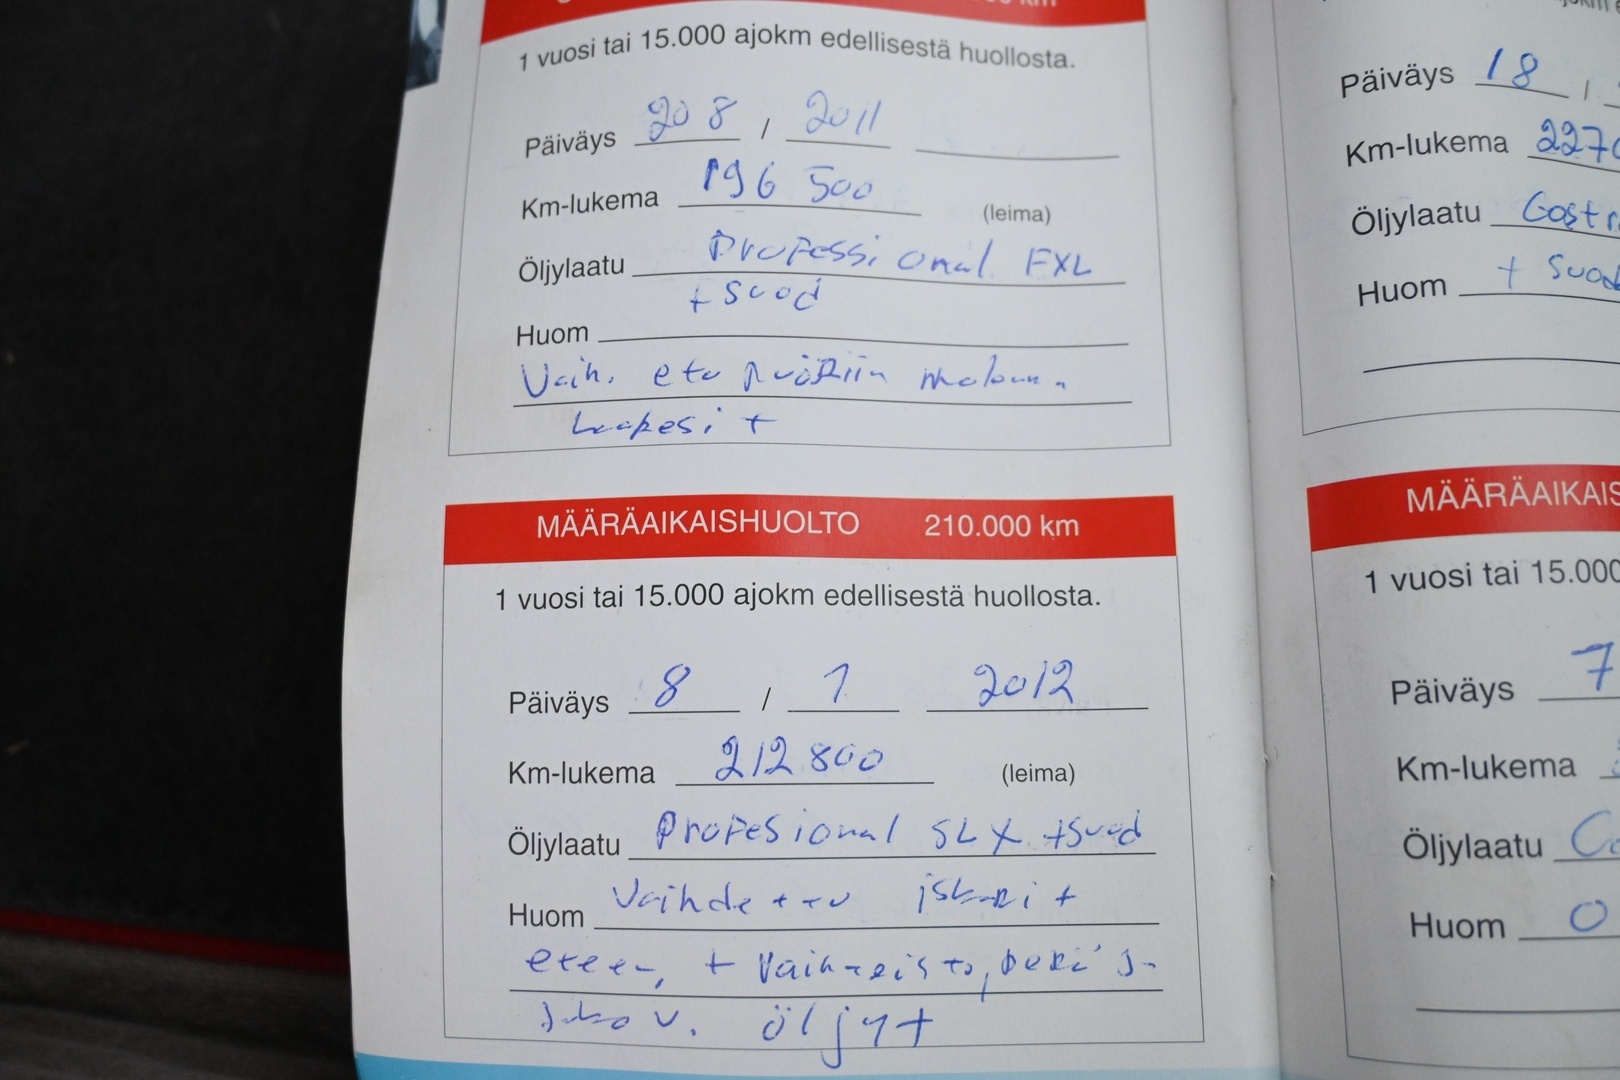 km
1 vuosi tai 15.000 ajokm edellisestä huollosta.
Päiväys 20 8 / 2011
Km-lukema 196 500 (leima)
Öljylaatu Professional FXL
+ suod
Huom
Vaih. etu
+
MÄÄRÄAIKAISHUOLTO 210.000 km
1 vuosi tai 15.000 ajokm edellisestä huollosta.
Päiväys 8 / 1 2012
Km-lukema 212 800 (leima)
Öljylaatu Profesional SLX +suod
Huom Vaihdettu iskarit
eteen, + vaihteisto, perä
öljyt
Päiväys 18 /
Km-lukema 2270
Öljylaatu Castr
Huom + suod
MÄÄRÄAIKAIS
1 vuosi tai 15.000
Päiväys 7
Km-lukema
Öljylaatu Ca
Huom O